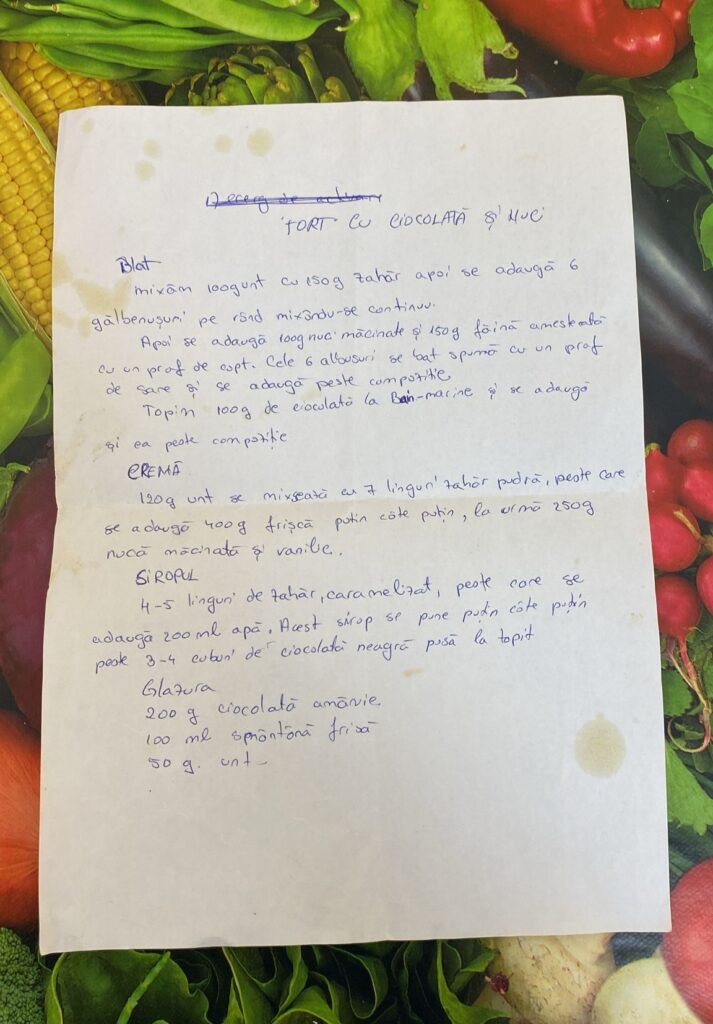 TORT CU CIOCOLATĂ ȘI NUCI
Blat
mixăm 100g unt cu 150g zahăr apoi se adaugă 6
gălbenușuri pe rând mixându-se continuu.
Apoi se adaugă 100g nuci măcinate și 150g făină amestecată
cu un praf de copt. Cele 6 albusuri se bat spumă cu un praf
de sare și se adaugă peste compoziție
Topim 100g de ciocolată la Bain-marine și se adaugă
și ea peste compoziție
CREMĂ
120g unt se mixează cu 7 linguri zahăr pudră, peste care
se adaugă 400g frișcă puțin câte puțin, la urmă 250g
nucă măcinată și vanilie.
SIROPUL
4-5 linguri de zahăr, caramelizat, peste care se
adaugă 200 ml apă. Acest sirop se pune puțin câte puțin
peste 3-4 cuburi de ciocolată neagră pusă la topit
Glazura
200 g ciocolată amăruie
100 ml smântână frișcă
50 g. unt